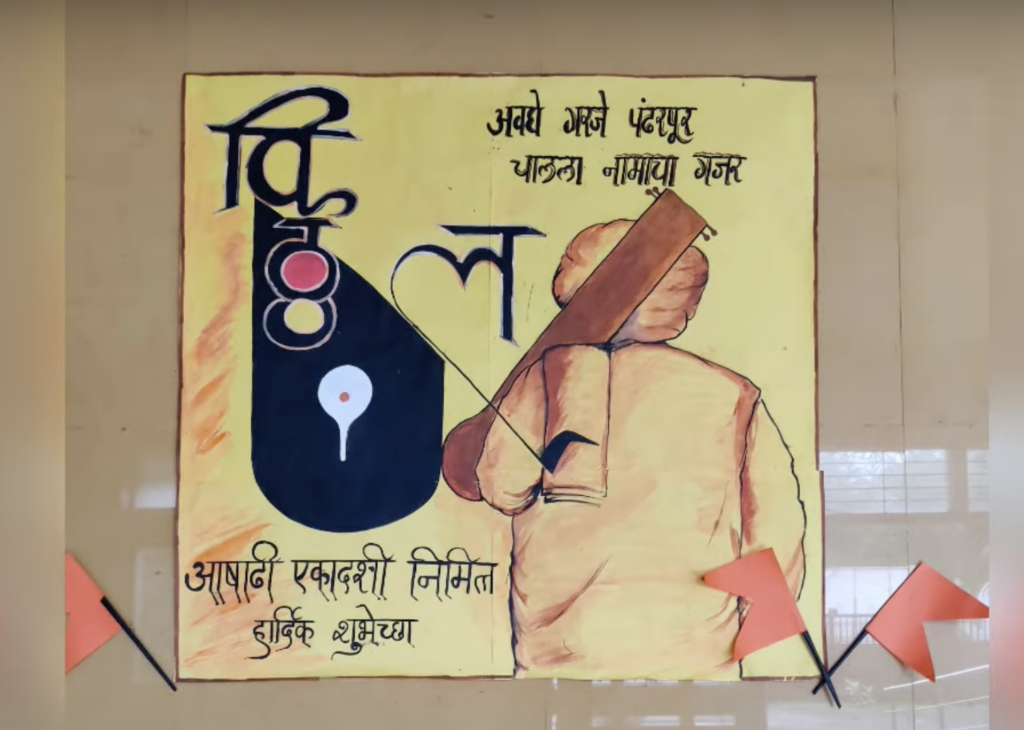 विठ्ठल
अवघे गरजे पंढरपूर
चालला नामाचा गजर
आषाढी एकादशी निमित्त
हार्दिक शुभेच्छा